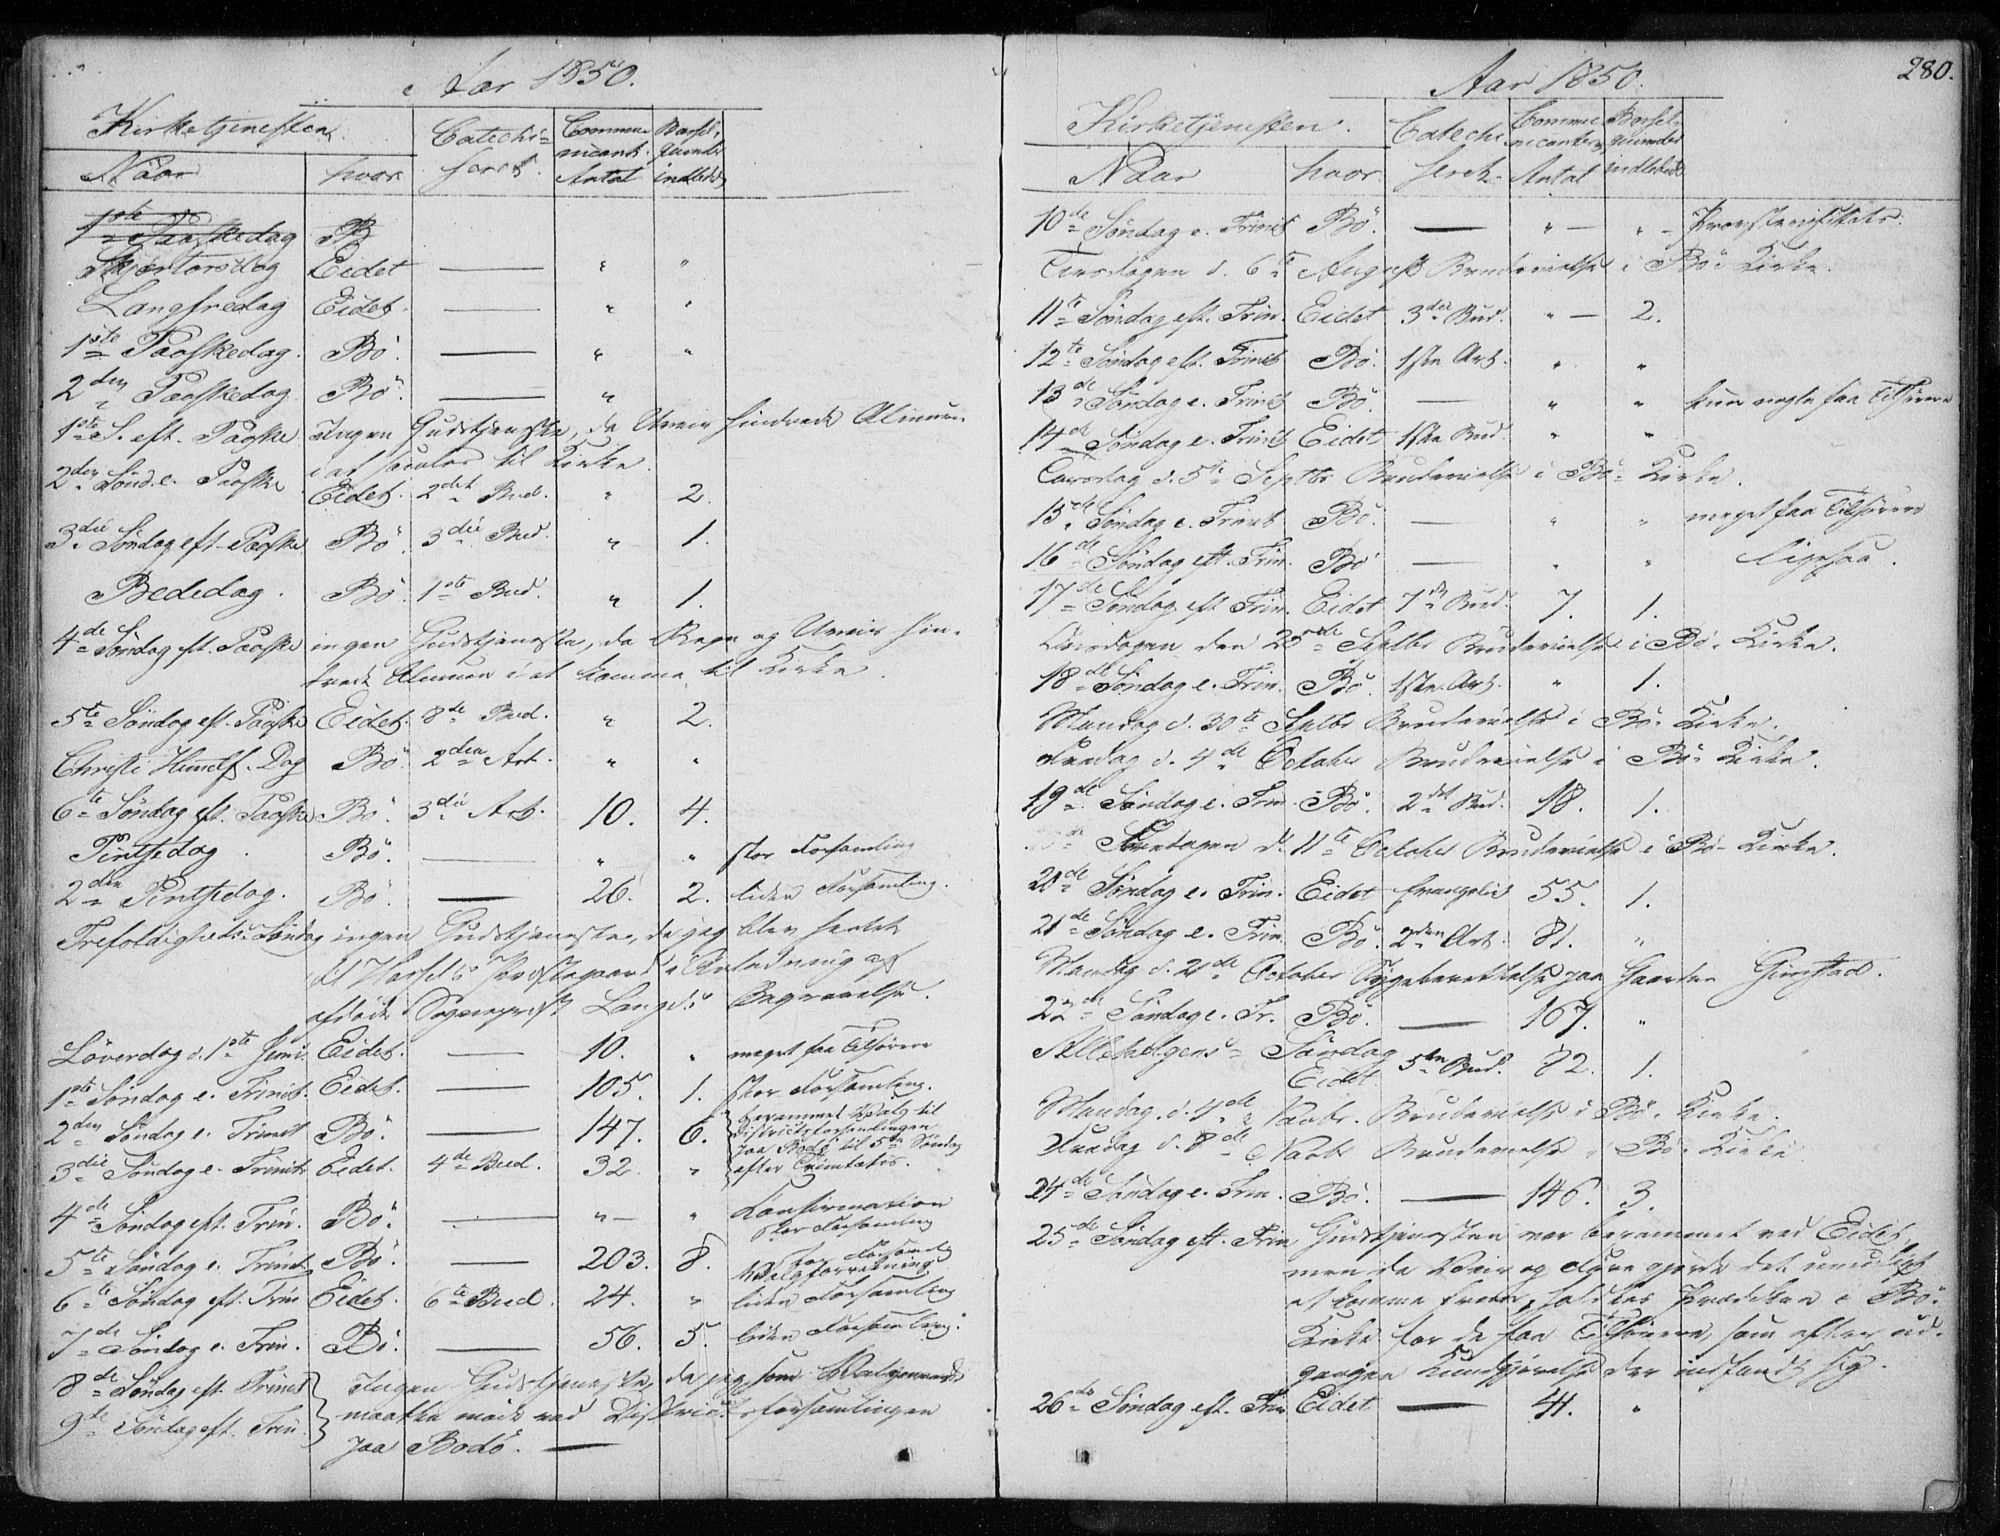 Aar 1850.
Kirketjenesten. Catechi- Commu- Barsel-
Naar hvor seret. nicant. quinder
Antal indledet
1ste Paaskedag B
Skjertorsdag Eidet — " "
Langfredag Eidet. — " "
1ste Paaskedag. Bö. — " "
2den Paaskedag Bö. — "
1ste S. eft. Paaske Ingen Gudstjeneste, da Uveir hindrede Almuen
i at komme til Kirke.
2den Sönd. e. Paaske Eidet. 2det Bud. " 2.
3die Söndag eft. Paaske Bö. 3die Bud. " 1.
Bededag. Bö. 1ste Bud. " 1.
4de Söndag eft. Paaske ingen Gudstjeneste, da Regn og Uveir hin-
drede Almuen i at komme til Kirke.
5te Söndag eft. Paaske Eidet. 8de Bud. " 2.
Christi Himelf. Dag Bö. 2den Art. " "
6te Söndag eft. Paaske Bö. 3die Art. 10. 4.
Pintsedag. Bö. — " " stor Forsamling
2den Pintsedag. Bö. — 26. 2. liden Forsamling.
Trefoldigheds-Söndag ingen Gudstjeneste, da jeg blev hentet
til Hassels Præstegaard i Anledning af
afdöde Sogneprest Langes Begravelse.
Löverdag d. 1ste Juni. Eidet. — 10. " meget faa Tilhörere
1ste Söndag e. Trinit. Eidet. — 105. 1. stor Forsamling.
2den Söndag e. Trinit Bö. — 147. 6. berammet Valg til
Districtsforsamlingen
paa Bodö til 5te Söndag
efter Trinitatis.
3die Söndag e. Trinit. Eidet. 4de Bud. 32. "
4de Söndag eft. Trin. Bö. — " — " Konfirmation
stor Forsamling
5te Söndag e. Trinit. Bö. — 203. 8. stor Forsamling
Valgforretning
6te Söndag eft. Trin Eidet. 6te Bud. 24. " liden Forsamling
7de Söndag e. Trin. Bö. — 56. 5. liden Forsamling.
8de Söndag eft. Trinit Ingen Gudstjeneste, da jeg som Valgmand
9de Söndag eft. Trin. maatte möde ved Districtsforsamlingen
paa Bodö. —
Aar 1850. 280.
Kirketjenesten. Catechi Commu Barsel-
nicanter quinder
Naar hvor seret. Antal indledede
10de Söndag e. Trinit Bö. — " — " — Provstevisitats.
Tirsdagen d. 6te August Brudevielse i Bö Kirke.
11te Söndag eft. Trin. Eidet 3die Bud. " — 2.
12te Söndag eft. Trinit Bö. 1ste Art. " "
13de Söndag e. Trinit Bö. — " " kun nogle faa Tilhörere
14de Söndag e. Trinit Eidet 1ste Bud. " "
Torsdag d. 5te Septbr Brudevielse i Bö Kirke.
15de Söndag e. Trinit Bö. — " " meget faa Tilhörere
16de Söndag eft. Trin. Bö — " " ligesaa.
17de Söndag eft Trin. Eidet 7de Bud. 7. 1.
Onsdagen den 25de Septbr Brudevielse i Bö Kirke.
18de Söndag e. Trin. Bö. 1ste Art. " 1.
Mandag d. 30te Septbr Brudevielse i Bö Kirke.
Fredag d. 4de October Brudevielse i Bö Kirke.
19de Söndag e. Trin. Bö. 2det Bud. 18. 1.
d. 11te October Brudevielse i Bö Kirke.
20de Söndag e. Trin. Eidet Evangeliet 55. 1.
21de Söndag e. Trin. Bö. 2den Art. 81. "
Mandag d. 21de October Sygeberettelse paa Gaarden Gimstad.
22de Söndag e. Tr. Bö. — 167. "
Allehelgens Söndag
Eidet 5te Bud. 72. 1.
Mandag d. 4de Novbr. Brudevielse i Bö Kirke.
Fredag d. 8de Novbr Brudevielse i Bö Kirke
24de Söndag e. Trin. Bö. — 146. 3.
25de Söndag eft. Trin Gudstjenesten var berammet ved Eidet,
men da Veir og Före gjorde det umuligt
at komme frem, holdtes Prædiken i Bö
Kirke for de faa Tilhörere, som efter ud-
gangen Kundgjörelse der indfandt sig.
26de Söndag eft. Trin Eidet — 41. "